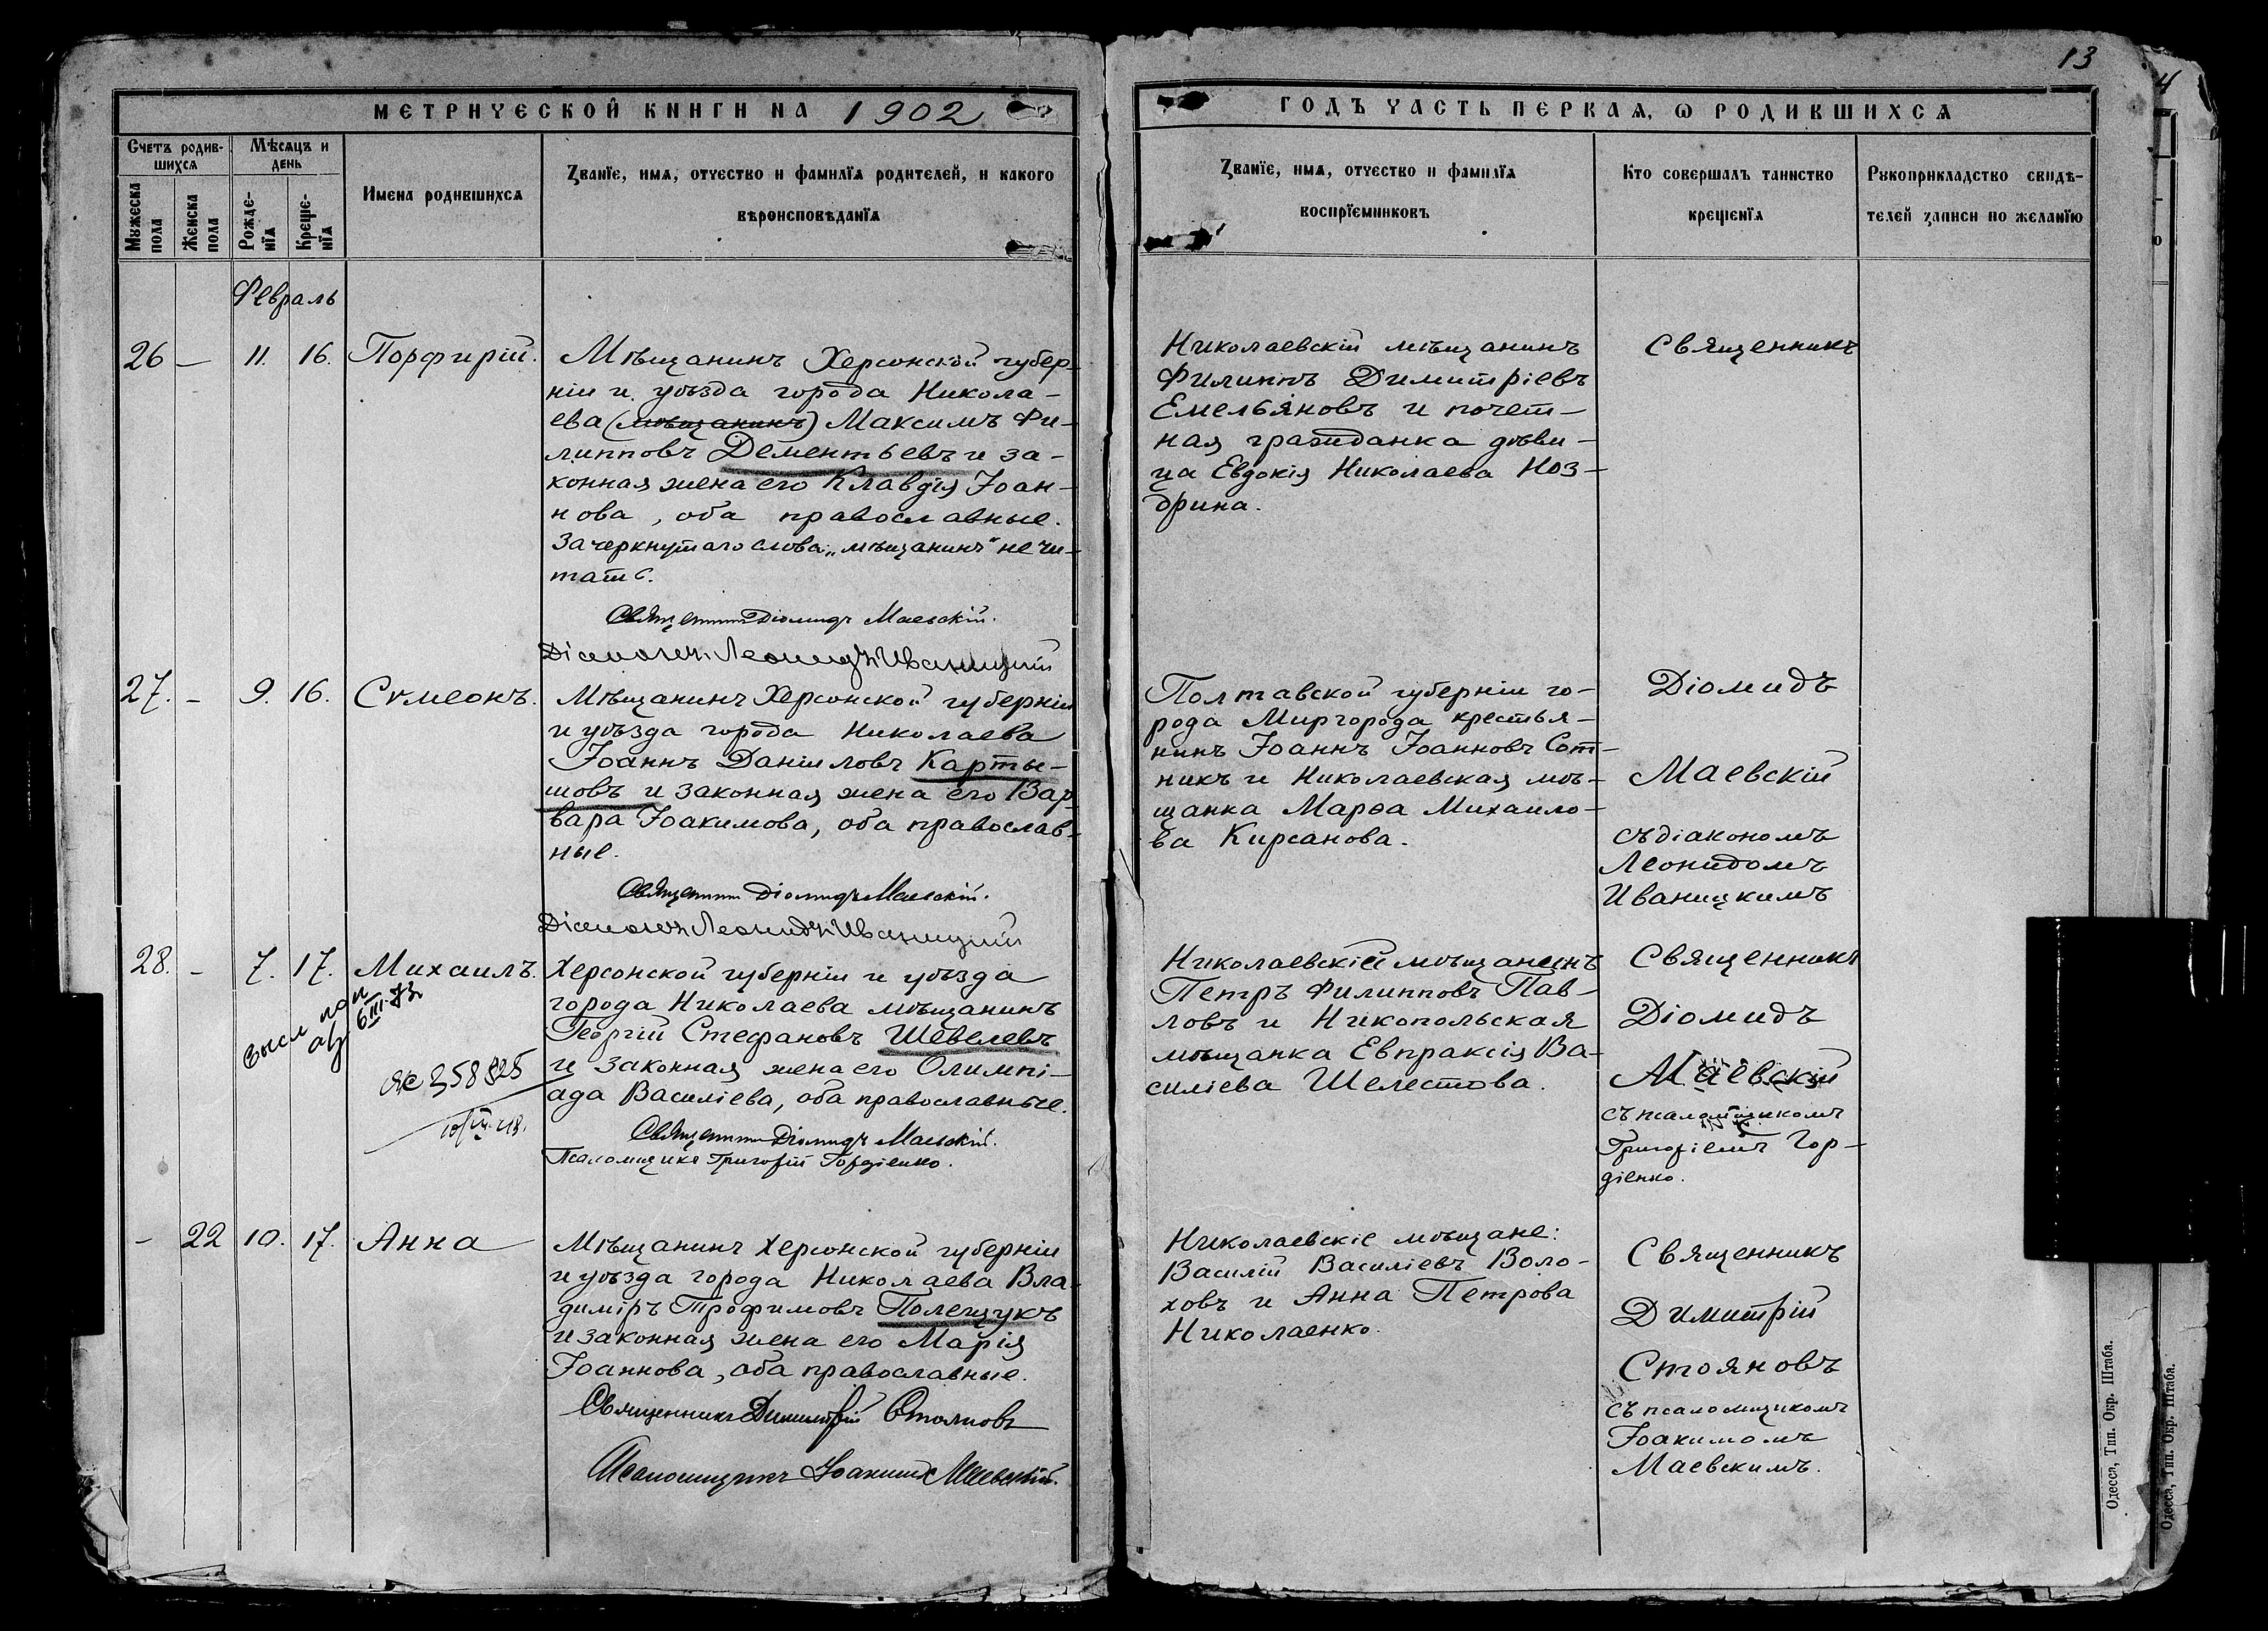 13
4
МЕТРИЧЕСКОЙ КНИГИ НА 1902
ГОДЪ ЧАСТЬ ПЕРВАЯ, Ѡ РОДИВШИХСѦ
Счетъ родив-
шихсѧ
Мужеска
пола
Женска
пола
Мѣсѧцъ и
день
Рожде-
нїѧ
Креще-
нїѧ
Имена родившихсѧ
Званїе, имѧ, отчество и фамилїѧ родителей, и какого
вѣроисповѣданїѧ
Званїе, имѧ, отчество и фамилїѧ
воспрїемниковъ
Кто совершалъ таинство
крещенїѧ
Рукоприкладство свидѣ-
телей записи по желанїю
Февраль
26 — 11. 16. Порфирій.
Мѣщанинъ Херсонской губер-
ніи и уѣзда города Никола-
ева (мѣщанинъ) Максимъ Фи-
липповъ Дементьевъ и за-
конная жена его Клавдія Іоан-
нова, оба православные.
Зачеркнутаго слова „мѣщанинъ" не чи-
тать.
Священникъ Діомидъ Маевскій.
Діаконъ Леонидъ Иваницкій
Николаевскій мѣщанинъ
Филиппъ Димитріевъ
Емельяновъ и почет-
ная гражданка дѣви-
ца Евдокія Николаева Ноз-
дрина.
Священникъ
27. — 9. 16. Сѵмеонъ.
Мѣщанинъ Херсонской губерніи
и уѣзда города Николаева
Іоаннъ Даніиловъ Карты-
шовъ и законная жена его Вар-
вара Іоакимова, оба православ-
ные.
Священникъ Діомидъ Маевскій.
Діаконъ Леонидъ Иваницкій
Полтавской губерніи го-
рода Миргорода крестья-
нинъ Іоаннъ Іоанновъ Сот-
никъ и Николаевская мѣ-
щанка Марѳа Михаило-
ва Кирсанова.
Діомидъ
Маевскій
съ діакономъ
Леонидомъ
Иваницкимъ
28. — 7. 17. Михаилъ.
Херсонской губерніи и уѣзда
города Николаева мѣщанинъ
Георгій Стефановъ Шевелевъ
и законная жена его Олимпі-
ада Василіева, оба православные.
Священникъ Діомидъ Маевскій.
Псаломщикъ Григорій Гордіенко.
Николаевскій мѣщанинъ
Петръ Филипповъ Пав-
ловъ и Никопольская
мѣщанка Евпраксія Ва-
силіева Шелестова.
Священникъ
Діомидъ
Маевскій
съ псаломщикомъ
Григоріемъ Гор-
діенко.
— 22 10. 17. Анна
Мѣщанинъ Херсонской губерніи
и уѣзда города Николаева Вла-
диміръ Трофимовъ Полещукъ
и законная жена его Марія
Іоаннова, оба православные.
Священникъ Димитрій Стояновъ
Псаломщикъ Іоакимъ Маевскій.
Николаевскіе мѣщане:
Василій Василіевъ Воло-
ховъ и Анна Петрова
Николаенко.
Священникъ
Димитрій
Стояновъ
съ псаломщикомъ
Іоакимомъ
Маевскимъ.
Одесса, Тип. Окр. Штаба.
Одесса, Тип. Окр. Штаба.